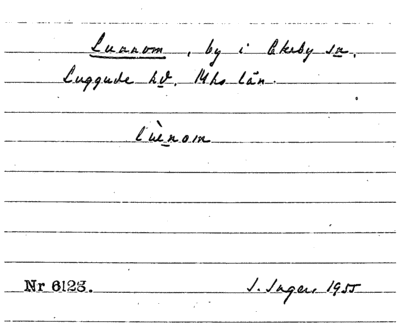 Lunnom, by i Ekeby sn,
Luggude hd, Mhs län.
lùnom
Nr 6123.
I. Ingers 1955